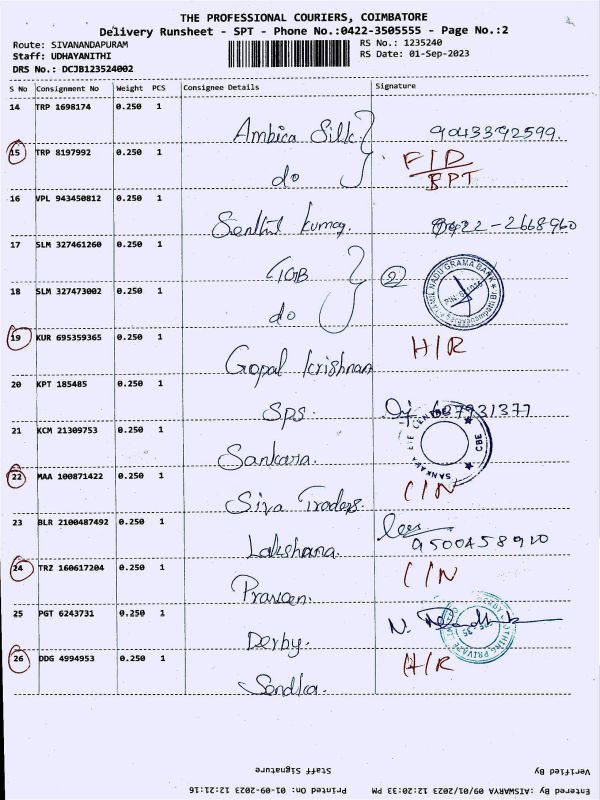 THE PROFESSIONAL COURIERS, COIMBATORE
Delivery Runsheet - SPT - Phone No.:0422-3505555 - Page No.:2
Route: SIVANANDAPURAM RS No.: 1235240
Staff: UDHAYANITHI RS Date: 01-Sep-2023
DRS No.: DCJB123524002
S No Consignment No Weight PCS Consignee Details Signature
14 TRP 1698174 0.250 1
Ambica Silk 9043392599.
15 TRP 8197992 0.250 1 F/D
do BPT
16 VPL 943450812 0.250 1
Senthil Kumar. 0422-2668960
17 SLM 327461260 0.250 1
TGB 2 TAMIL NADU GRAMA BANK
18 SLM 327473002 0.250 1
do
19 KUR 695359365 0.250 1 H/R
Gopal Krishnan
20 KPT 185485 0.250 1
Sps.
21 KCM 21309753 0.250 1 SANKARA EYE CBE
Sankara.
22 MAA 100871422 0.250 1 C/N
Siva Traders
23 BLR 2100487492 0.250 1
Lakshana. 9500458920
24 TRZ 160617204 0.250 1 C/N
Praveen.
25 PGT 6243731 0.250 1 N.
Derby. PRIVATE
26 DDG 4994953 0.250 1 H/R
Staff Signature Verified By
Printed On: 01-09-2023 12:21:16 Entered By :AISWARYA 09/01/2023 12:20:33 PM